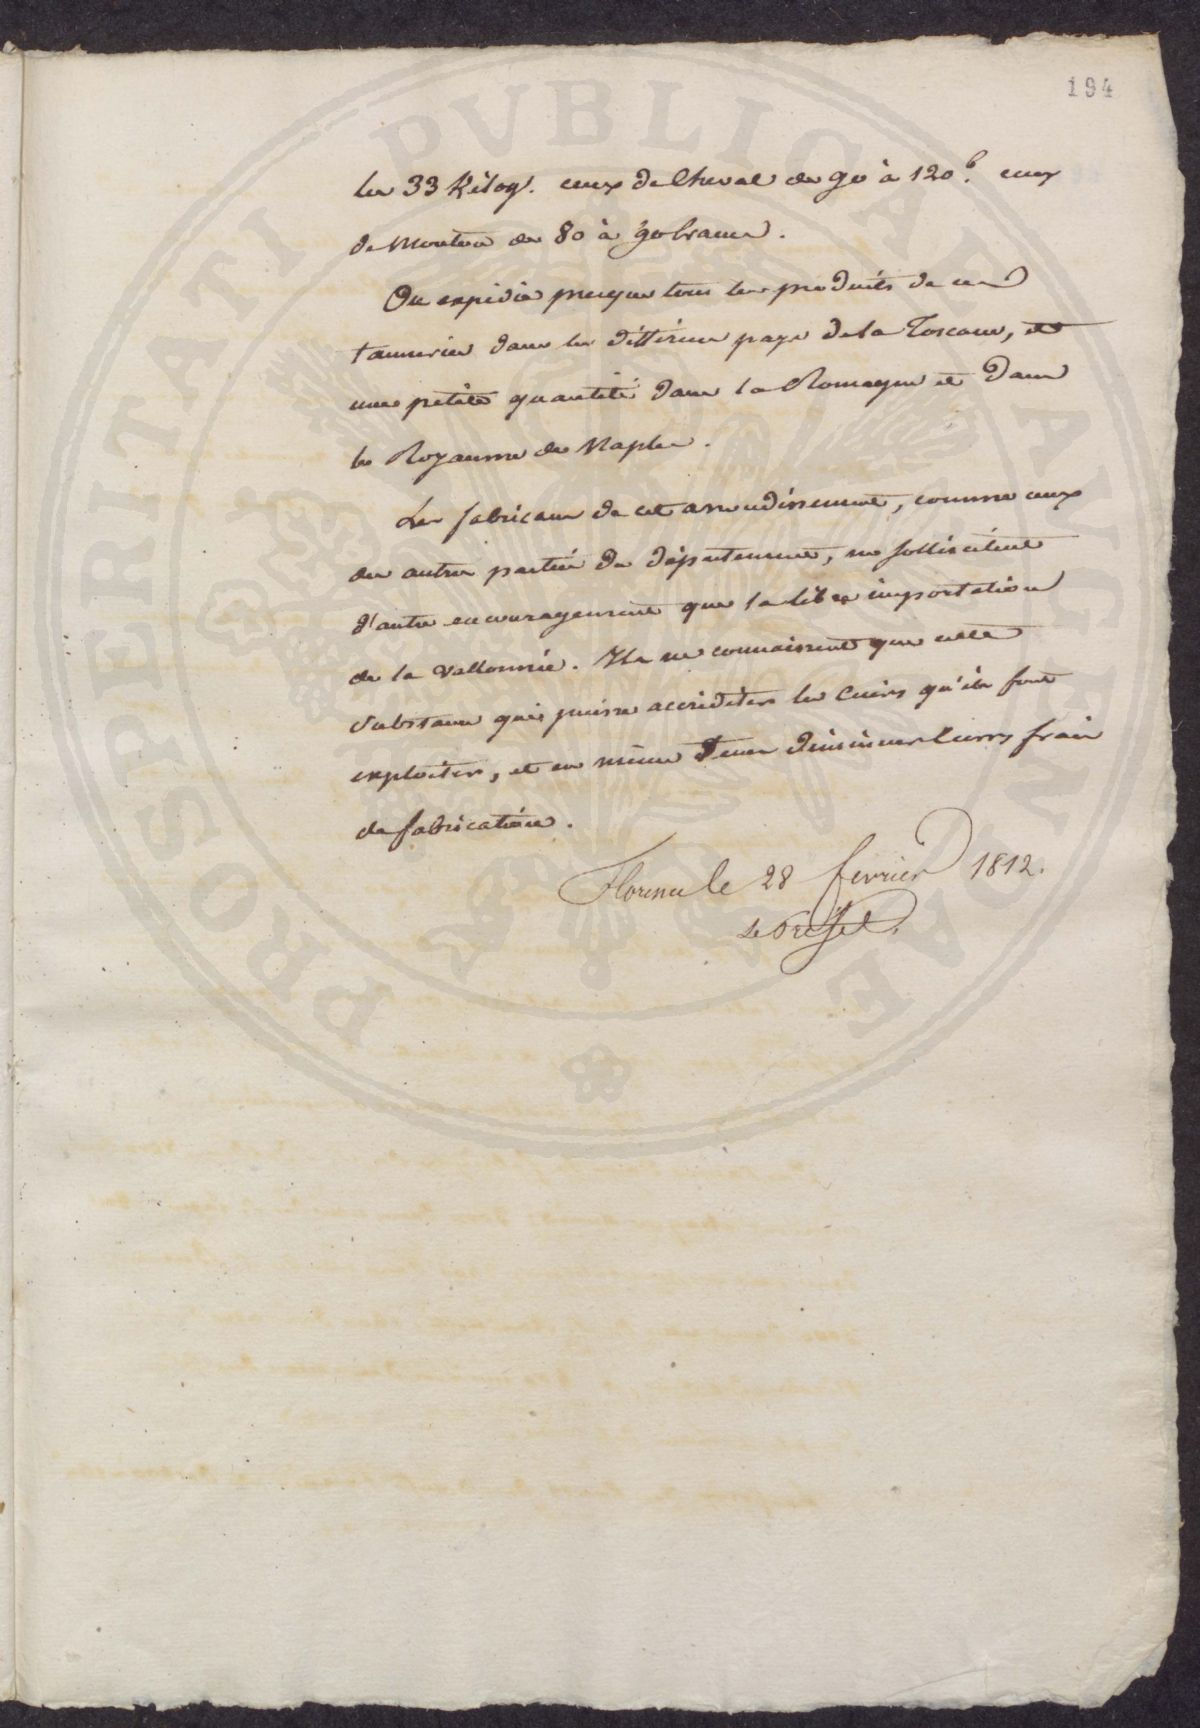 194
les 33 Kilog. ceux de Cheval de 90 à 120 f. ceux
de Mouton de 80 à 90 francs.
On expédie presque tous les produits de ces
tanneries dans les différens pays de la Toscane, et
une petite quantité dans la Romagne et dans
le Royaume de Naples.
Les fabricans de cet arrondissement, comme ceux
des autres parties du département, ne sollicitent
d'autre encouragement que la libre importation
de la Vallonnée. Ils ne connaissent que cette
substance qui puisse accréditer les Cuirs qu'ils font
exploiter, et en même tems diminuer leurs frais
de fabrication.
Florence le 28 fevrier 1812.
Le Préfet.
PROSPERITATI PVBLICAE AVGENDAE